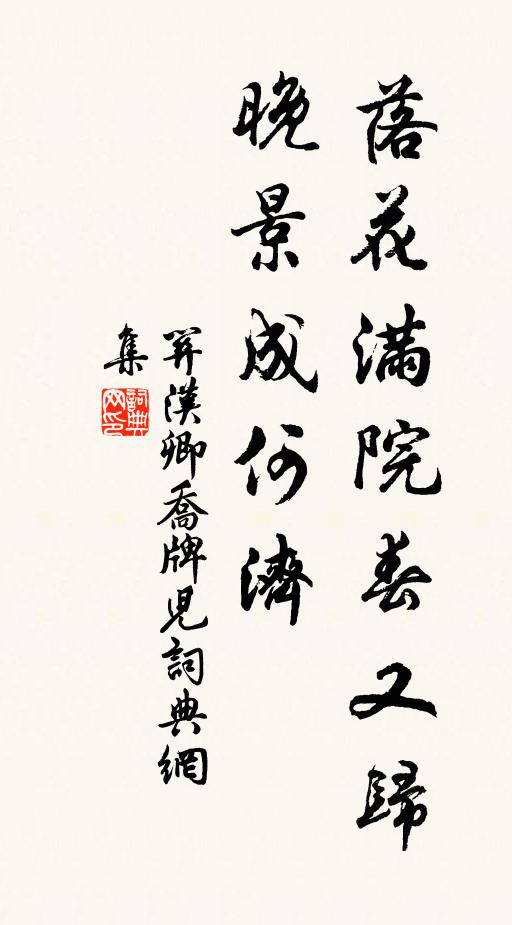 落花滿院春又歸
晚景成何濟
關漢卿喬牌兒詞典網
集
詞典網印